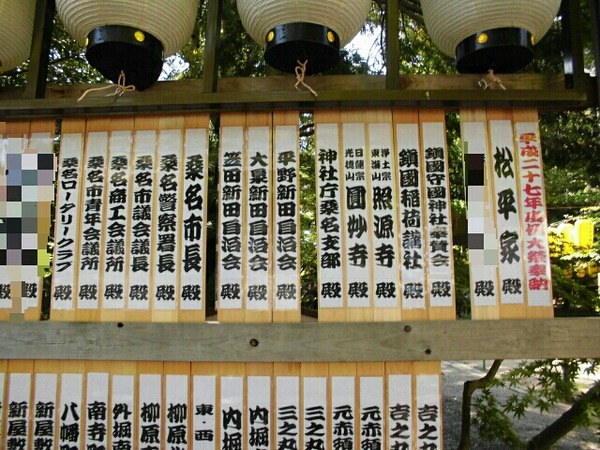 平成二十七年度例大祭奉納
松平家 殿
殿
鎮國守國神社奉賛会 殿
鎮國稲荷龍社 殿
浄土宗 東瀬山 照源寺 殿
日蓮宗 光徳山 圓妙寺 殿
神社庁桑名支部 殿
平野新田自治会 殿
大泉新田自治会 殿
笠田新田自治会 殿
桑名市長 殿
桑名警察署長 殿
桑名市議会議長 殿
桑名商工会議所 殿
桑名市青年会議所 殿
桑名ロータリークラブ 殿
殿
吉之丸
吉之丸
元赤須
元赤須
三之丸
三之丸
内堀
内堀
東・西
柳原
柳原
外堀南
南寺町
八幡町
新屋敷
新屋敷